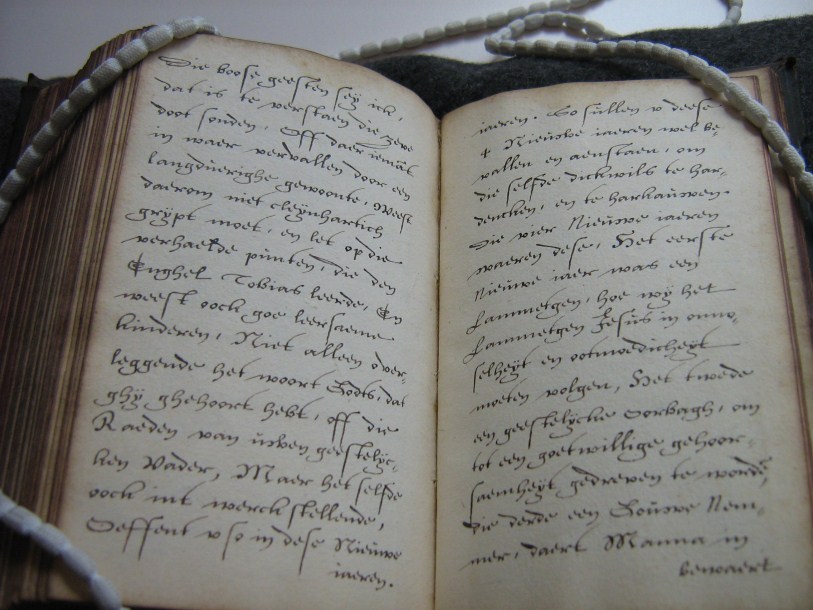 Die boose geesten seÿ ick,
dat is te verstaen die zeve
doot sonden, Off daer iemāt
in waer vervallen door een
langduerighe gewoonte, Weest
daerom niet cleÿnhartich
grÿpt moet, en let op die
verhaelde pūnten, die den
Enghel Tobias leerde, En
weest oock goe leersame
kinderen, Niet alleen over-
leggende het woort Godts, dat
ghÿ ghehoort hebt, off die
Raeden van ūwen geestelÿc-
ken Vader, Maer het selfde
oock int werck stellende,
Oeffent v so in dese Nieūwe
iaeren.
iaeren. So sūllen v deese
4 Nieūwe iaeren wel be-
vallen en aenstaen, om
die selfde dickwils te her-
dencken, en te herkaūwen.
Die vier Nieūwe iaeren
waeren dese, Het eerste
Nieūwe iaer was een
Lammetgen, hoe wÿ het
Lammetgen Jesūs in onno-
selheÿt en ootmoedicheÿt
moeten volgen, Het twede
een geestelÿcke Oorbagh, om
tot een goetwillige gehoor-
saemheÿt gedreven te wordē,
die derde een Goūwe Nem-
mer, daert Manna in
bewaert